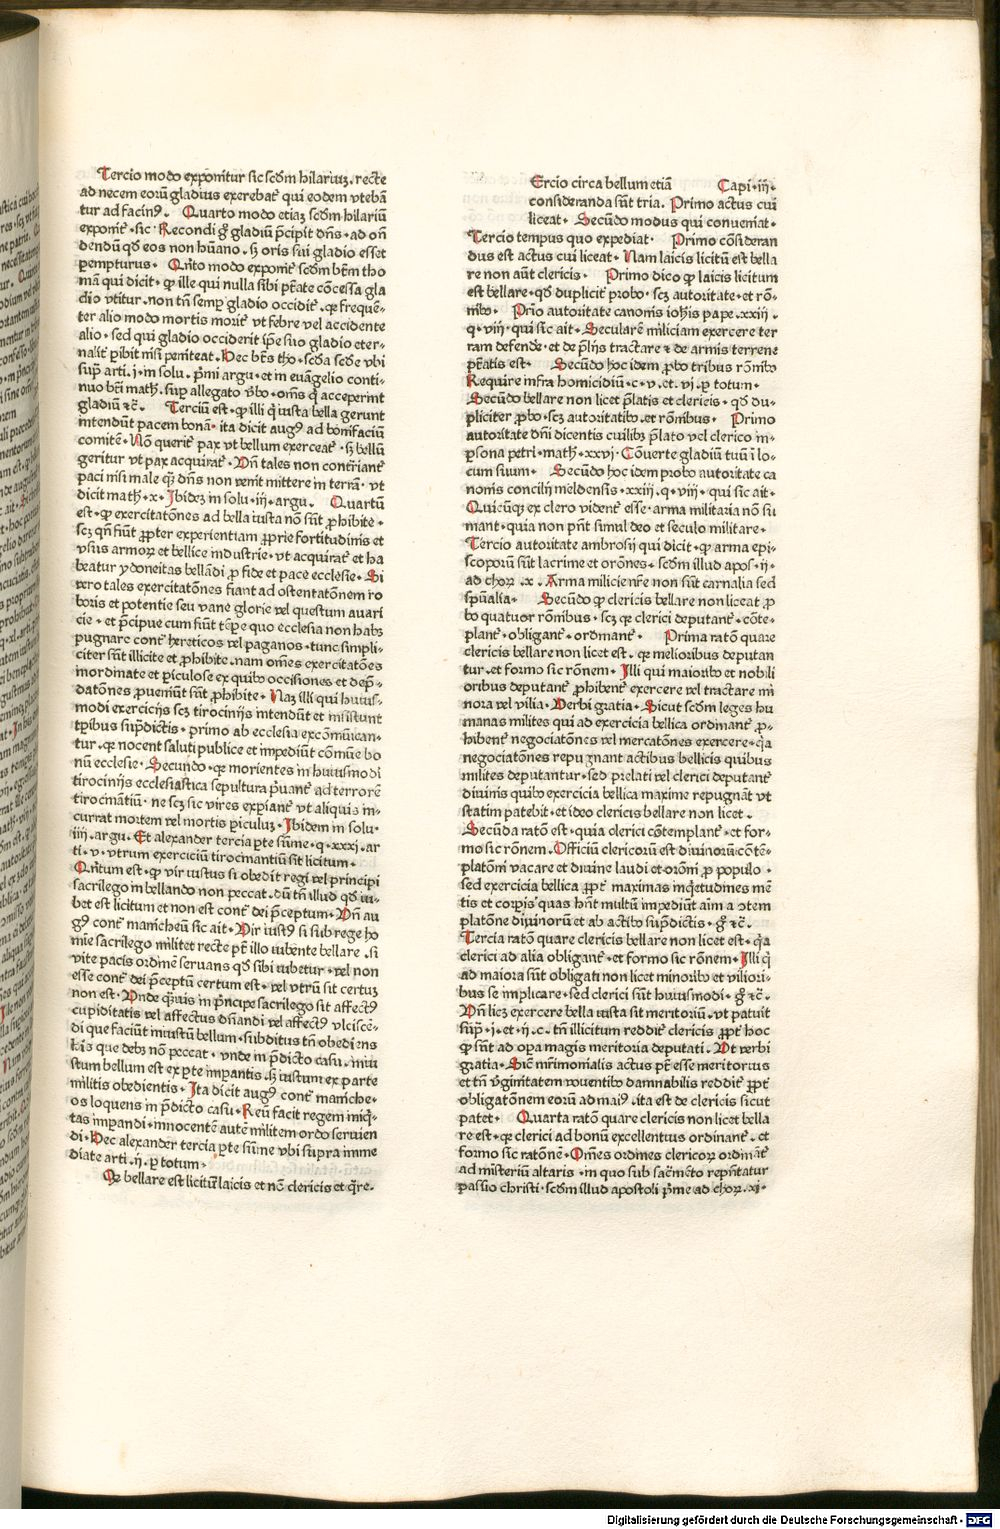 Tercio modo exponitur sic scḋm hilariuꝫ. recte
ad necem eorū gladius exerebat᷑ qui eodem vtebā
tur ad facinꝰ. Quarto modo etiaꝫ scḋm hilariū
exponit᷑ · sic · Recondi g̊ gladiū p̄cipit dn̄s · ad on̄
dendū qḋ eos non hūano · sꝫ oris sui gladio esset
ꝑempturus · Qn̄to modo exponit᷑ scḋm btm̄ tho
mā qui dicit · ꝙ ille qui nulla sibi ptāte cōcessa gla
dio vtitur · non tn̄ semꝑ gladio occidit᷑ · qꝛ frequē-
ter alio modo mortis morit᷑ vt febre vel accidente
alio · sed qui gladio occiderit ip̄e suo gladio eter-
nalit᷑ ꝑibit nisi peniteat. Hec bt̄s tho · scḋa scḋe vbi
sup̄ arti · j · in solu · p̄mi argu · et in euāgelio conti-
nuo bt̄i math̄ · suꝑ allegato v̄bo · oms̄ q̄ acceperint
gladiū ⁊c̄ · Terciū est · ꝙ illi q̄ iusta bella gerunt
intendūt pacem bonā · ita dicit augꝰ ad bonifaciū
comitē · Nō querit᷑ pax vt bellum exerceat᷑ · sꝫ bellū
geritur vt pax acquirat᷑ · Vn̄ tales non cont᷑riant᷑
paci nisi male qꝫ dn̄s non venit mittere in terrā · vt
dicit math̄ · x · Ibideꝫ in solu · iij · argu · Quartū
est · ꝙ exercitatōnes ad bella iusta nō sūt ꝓhibite ·
scꝫ qn̄ fiūt ꝓpter experientiam ꝓprie fortitudinis et
vsus armoꝝ et bellice industrie · vt acquirat᷑ et ha
beatur ydoneitas bellādi ꝓ fide et pace ecclesie · Si
vero tales exercitatōnes fiant ad ostentatōnem ro
boris et potentie seu vane glorie vel questum auari
cie · et p̄cipue cum fiūt tēpe quo ecclesia non habꝫ
pugnare cont᷑ hereticos vel paganos · tunc simpli-
citer sūt illicite et ꝓhibite · nam om̄es exercitatōes
inordinate et ꝑiculose ex quibꝰ occisiones et dep̄-
datōnes ꝓueniūt sūt ꝓhibite · Naꝫ illi qui huius-
modi exercicijs scꝫ tirocinijs intendūt et insistunt
tp̄ibus sup̄dictis · primo ab ecclesia excōmūican-
tur · qꝛ nocent saluti publice et impediūt cōmūe bo
nū ecclesie · Secundo · qꝛ morientes in huiusmodi
tirocinijs ecclesiastica sepultura p̄uant᷑ ad terrorē
tirocinātiū · ne scꝫ sic vires expiant᷑ vt aliquis in-
currat mortem vel mortis ꝑiculuꝫ · Ibidem in solu ·
iiij · argu · Et alexander tercia ꝑte sūme · q · xxxi · ar
ti · v · vtrum exerciciū tirocinantiū sit licitum ·
Qn̄tum est · ꝙ vir iustus si obedit regi vel principi
sacrilego in bellando non peccat · dū tn̄ illud qḋ iu-
bet est licitum et non est cont᷑ dei p̄ceptum · Vn̄ au
gꝰ cont᷑ manicheū sic ait · Vir iustꝰ si sub rege ho
mīe sacrilego militet recte pt̄ illo iubente bellare · si
vite pacis ordinē seruans qḋ sibi iubetur · vel non
esse cont᷑ dei p̄ceptū certum est · vel vtrū sit certuꝫ
non est · Vnde q̄uis in p̄ncipe sacrilego sit affectꝰ
cupiditatis vel affectus dn̄andi vel affectꝰ vlciscē-
di que faciūt iniustū bellum · subditus tn̄ obediens
his que debꝫ nō peccat · vnde in p̄dicto casu · iniu
stum bellum est ex ꝑte imꝑantis · sꝫ iustum ex parte
militis obedientis · Ita dicit augꝰ cont᷑ maniche-
os loquens in p̄dicto casu · Reū facit regem iniq̄-
tas imꝑandi · innocentē autē militem ordo seruien
di · Hec alexander tercia ꝑte sūme vbi supra imme
diate arti · ij · ꝑ totum ·
Qꝛ bellare est licitū laicis et nō clericis et q̄re ·
Ercio circa bellum etiā Capi · iij ·
consideranda sūt tria. Primo actus cui
liceat · Secūdo modus qui conueniat ·
Tercio tempus quo expediat · Primo cōsideran
dus est actus cui liceat · Nam laicis licitū est bella
re non aūt clericis · Primo dico ꝙ laicis licitum
est bellare · qḋ duplicit᷑ probo · scꝫ autoritate · et rō-
nibꝰ · Prīo autoritate canonis ioh̄is pape · xxiij ·
q · viij · qui sic ait · Secularē miliciam exercere ter
ram defende · et de p̄lijs tractare ⁊ de armis terrene
ptāt̄is est · Secūdo hoc idem ꝓbo tribus rōnibꝰ
Require infra homicidiū · c · v · et · vi · ꝑ totum ·
Secūdo bellare non licet p̄latis et clericis · qḋ du-
pliciter ꝓbo · scꝫ autoritatibꝰ · et rōnibus · Primo
autoritate dn̄i dicentis cuilibꝫ p̄lato vel clerico in-
ꝑsona petri · math̄ · xxvi · Cōuerte gladiū tuū ī lo-
cum suum · Secūdo hoc idem probo autoritate ca
nonis concilij meldensis · xxiij · q · viij · qui sic ait ·
Quicūqꝫ ex clero vident᷑ esse · arma militaria nō su
mant · quia non pn̄t simul deo et seculo militare ·
Tercio autoritate ambrosij qui dicit · ꝙ arma epi-
scoporū sūt lacrime et orōnes · scḋm illud apos · ij ·
ad choꝝ · x · Arma milicie nr̄e non sūt carnalia sed
spūalia · Secūdo ꝙ clericis bellare non liceat ꝓ
bo quatuor rōnibus · scꝫ qꝛ clerici deputant᷑ · cōte-
plant᷑ · obligant᷑ · ordinant᷑ · Prima ratō quare
clericis bellare non licet est · qꝛ melioribus deputan
tur · et formo sic rōnem · Illi qui maioribꝰ et nobili
oribus deputant᷑ ꝓhibent᷑ exercere vel tractare mi
nora vel vilia · Verbi gratia · Sicut scḋm leges hu
manas milites qui ad exercicia bellica ordinant᷑ ꝓ-
hibent᷑ negociatōnes vel mercatōnes exercere · q̄a
negociatōnes repugnant actibus bellicis quibus
milites deputantur · sed prelati vel clerici deputant᷑
diuinis quibꝰ exercicia bellica maxime repugnāt vt
statim patebit · et ideo clericis bellare non licet ·
Secūda ratō est · quia clerici cōtemplant᷑ · et for-
mo sic rōnem · Officiū clericorū est diuinorū cōtē-
platōni vacare et diuine laudi et orōni ꝓ populo ·
sed exercicia bellica ꝓpt᷑ maximas inq̄etudines mē
tis et corꝑis quas hn̄t multū impediūt aīm a ɔtem
platōne diuinorū et ab actibꝰ sup̄dictis · g̊ ⁊c̄ ·
Tercia ratō quare clericis bellare non licet est · q̄a
clerici ad alia obligant᷑ · et formo sic rōnem · Illi q̄
ad maiora sūt obligati non licet minoribꝰ et viliori-
bus se implicare · sed clerici sūt huiusmodi · g̊ ⁊c̄ ·
Vn̄ licꝫ exercere bella iusta sit meritoriū · vt patuit
sup̄ · j · et · ij · c · tn̄ illicitum reddit᷑ clericis ꝓpt᷑ hoc
ꝙ sūt ad oꝑa magis meritoria deputati · Vt verbi
gratia · Sic̄ mr̄imonialis actus pt̄ esse meritorius
et tn̄ v̄ginitatem vouentibꝰ damnabilis reddit᷑ ꝓpt᷑
obligatōnem eorū ad maiꝰ · ita est de clericis sicut
patet · Quarta ratō quare clericis non licet bella
re est · qꝛ clerici ad bonū excellentius ordinant᷑ · et
formo sic ratōne · Om̄es ordines clericoꝝ ordināt᷑
ad misteriū altaris · in quo sub sacm̄ēto repn̄tatur
passio christi · scḋm illud apostoli p̄me ad choꝝ · xi ·
Digitalisierung gefördert durch die Deutsche Forschungsgemeinschaft - DFG